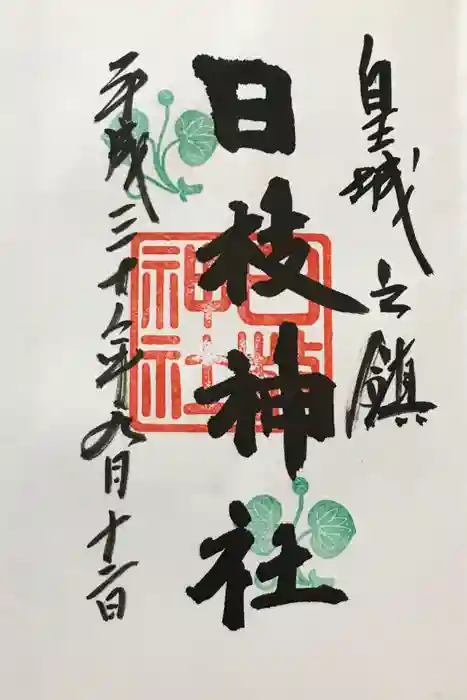 皇城之鎮
日枝神社
日枝神社
平成三十年九月十二日